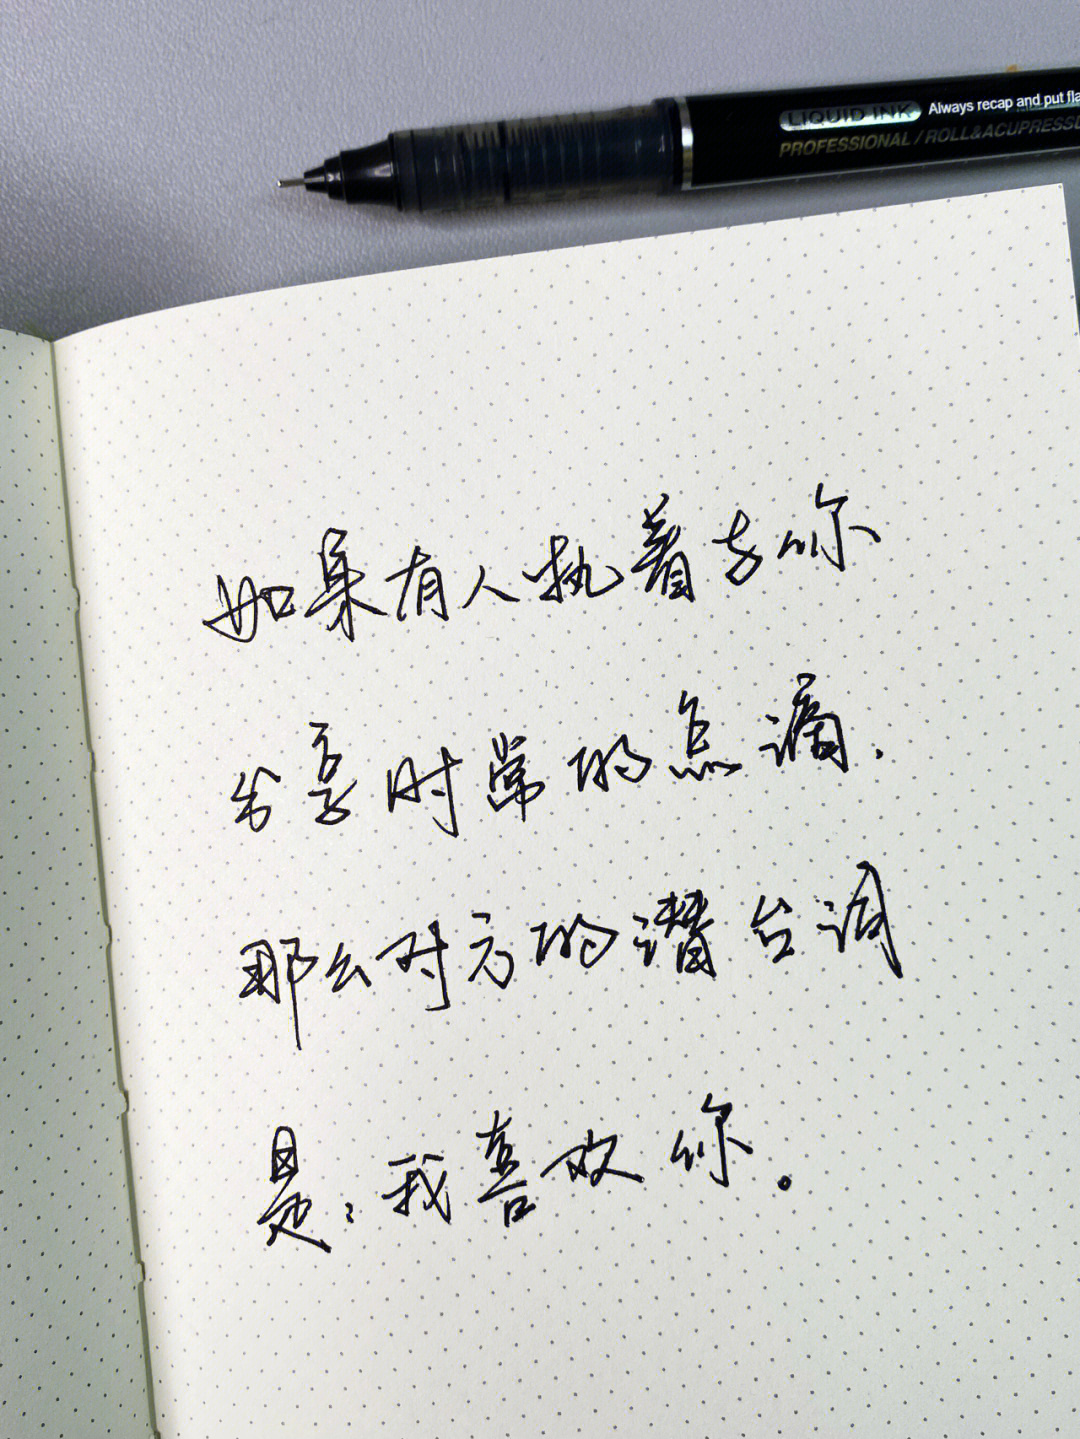 LIQUID INK Always recap and put fla
PROFESSIONAL / ROLL&ACUPRESSU
如果有人执着与你
分享时常的点滴.
那么对方的潜台词
是：我喜欢你。